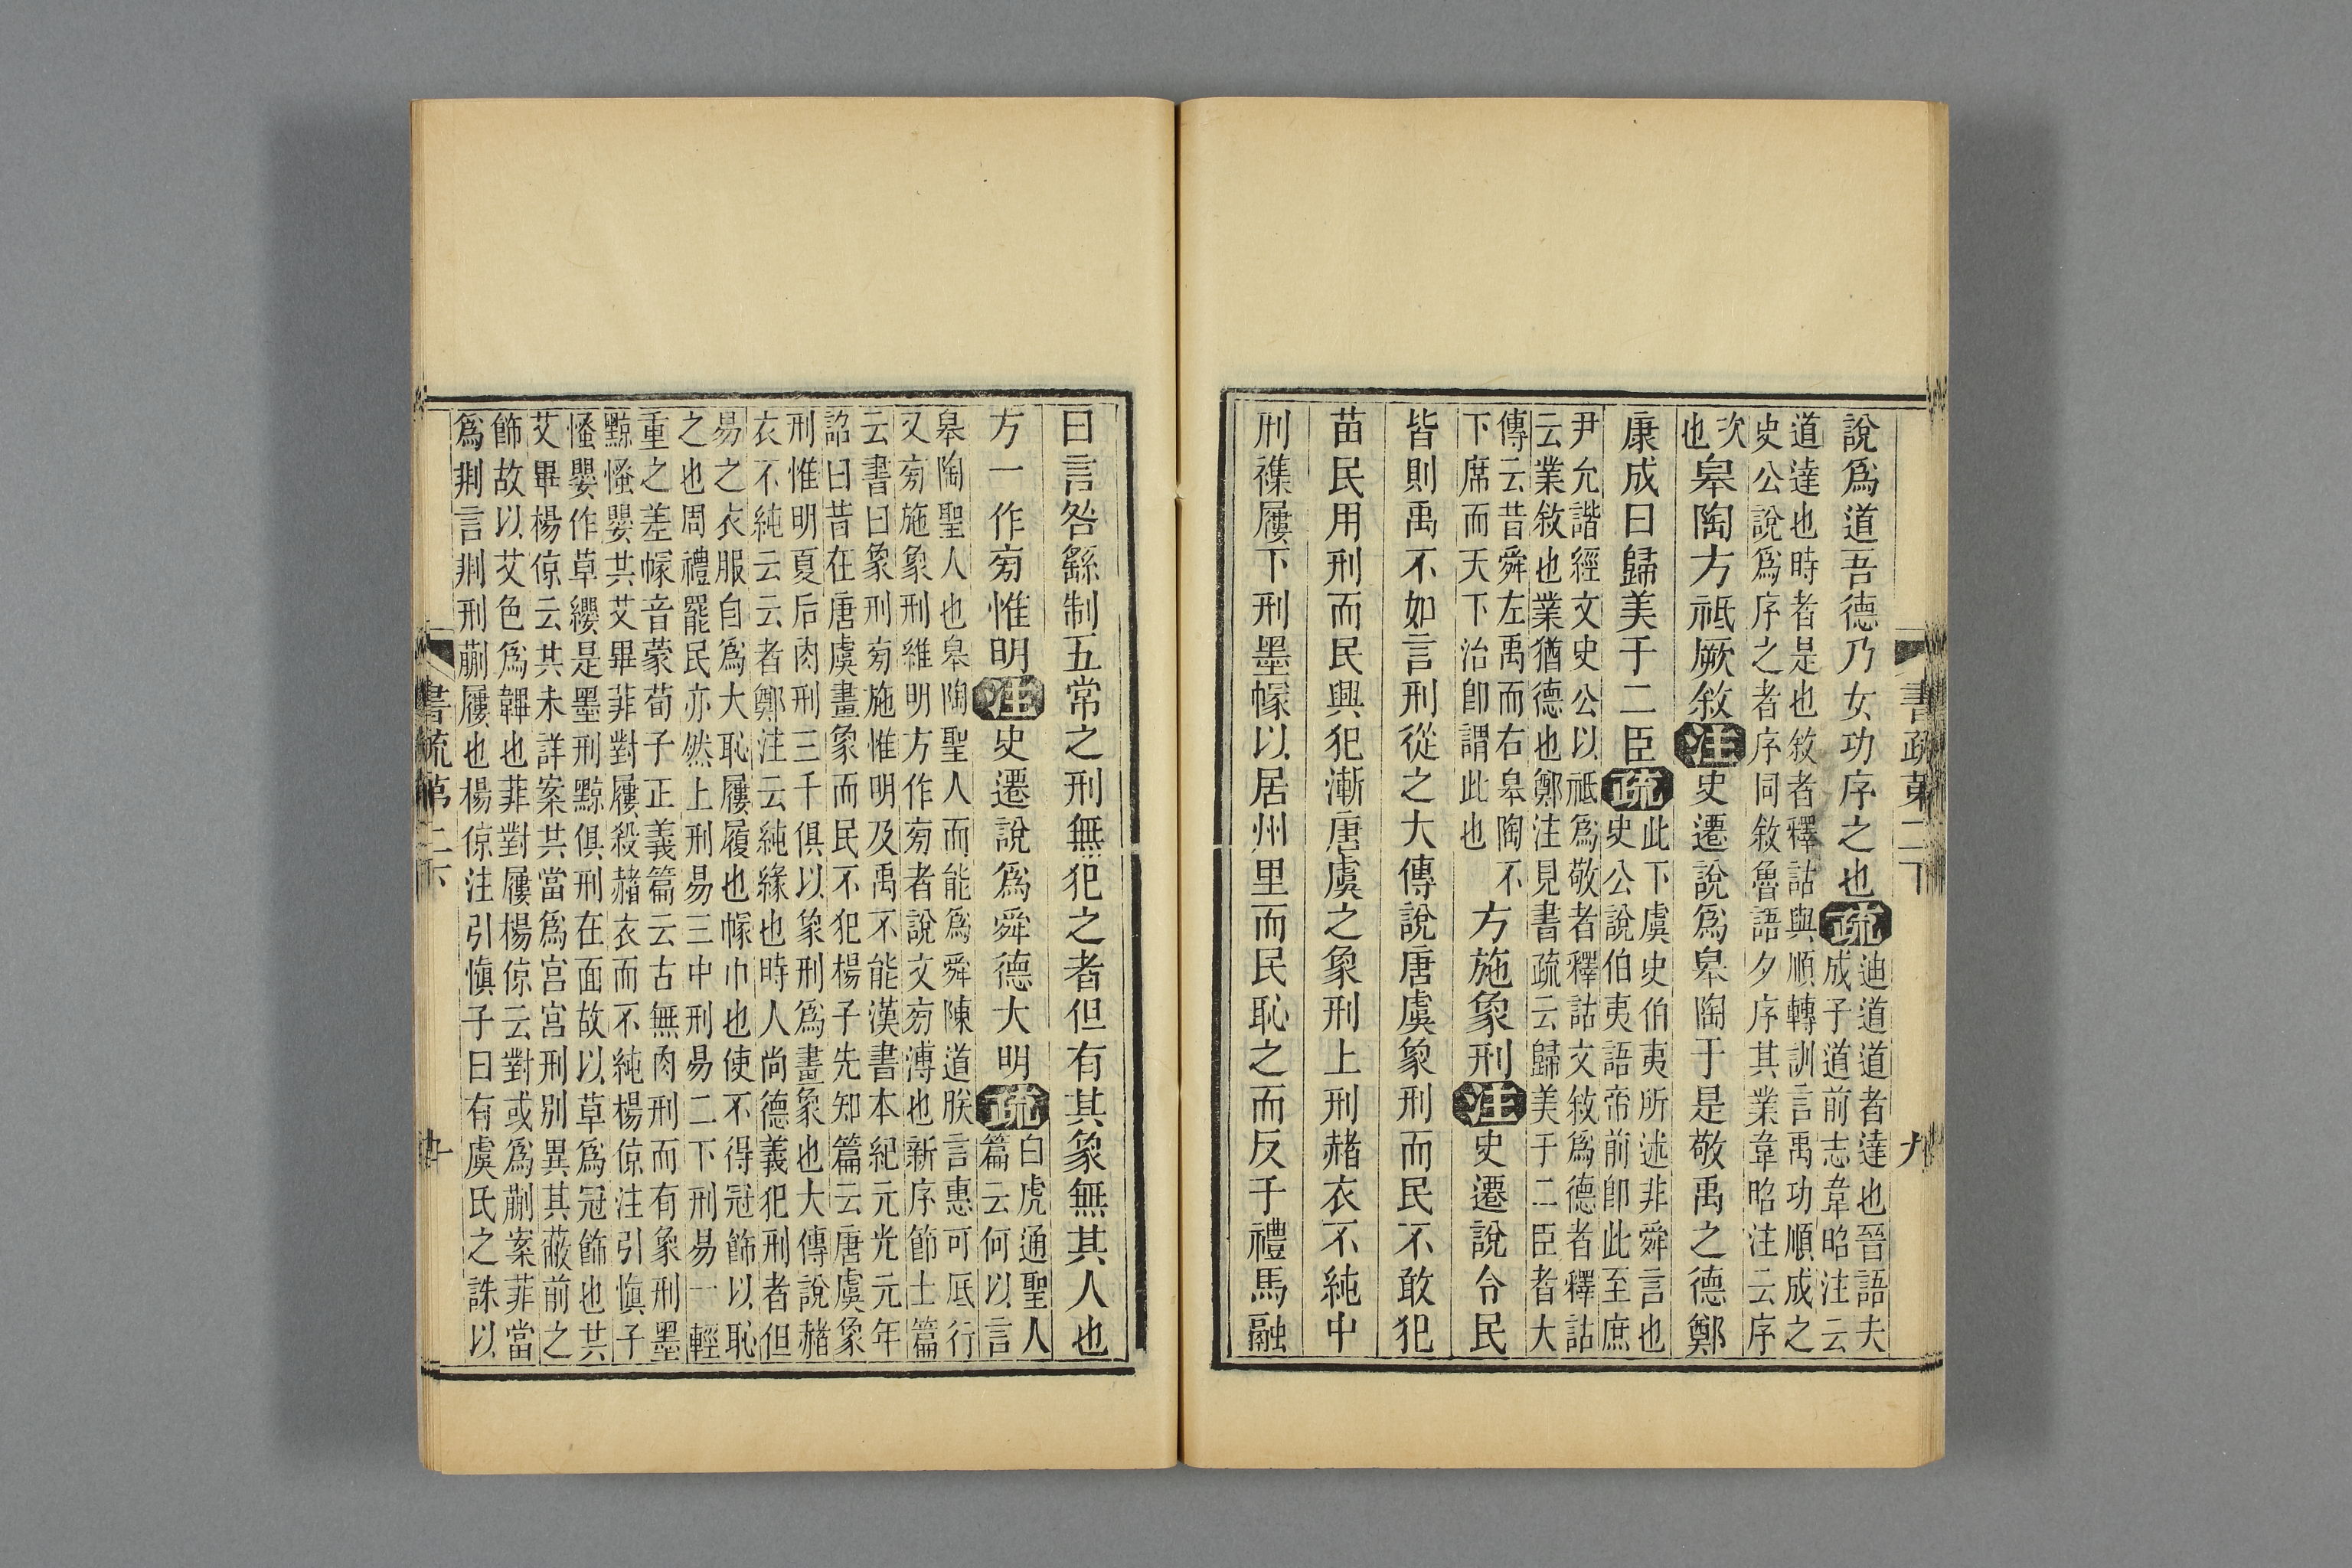 書疏第二下 九
說爲道吾德乃女功序之也疏迪道道者達也晉語夫
成子道前志韋昭注云
道達也時者是也敘者釋詁與順轉訓言禹功順成之
史公說爲序之者序同敘魯語夕序其業韋昭注云序
次
也
皋陶方祗厥敘注史遷說爲皋陶于是敬禹之德鄭
康成曰歸美于二臣疏此下虞史伯夷所述非舜言也
史公說伯夷語帝前卽此至庶
尹允諧經文史公以祗爲敬者釋詁文敘爲德者釋詁
云業敘也業猶德也鄭注見書疏云歸美于二臣者大
傳云昔舜左禹而右皋陶不
下席而天下治卽謂此也
方施象刑注史遷說令民
皆則禹不如言刑從之大傳說唐虞象刑而民不敢犯
苗民用刑而民興犯漸唐虞之象刑上刑赭衣不純中
刑襍屨下刑墨幪以居州里而民恥之而反于禮馬融
曰言咎繇制五常之刑無犯之者但有其象無其人也
方一作旁惟明注史遷說爲舜德大明疏白虎通聖人
篇云何以言
皋陶聖人也皋陶聖人而能爲舜陳道朕言惠可厎行
又旁施象刑維明方作旁者說文旁溥也新序節士篇
云書曰象刑旁施惟明及禹不能漢書本紀元光元年
詔曰昔在唐虞畫象而民不犯楊子先知篇云唐虞象
刑惟明夏后肉刑三千俱以象刑爲畫象也大傳說赭
衣不純云云者鄭注云純緣也時人尚德義犯刑者但
易之衣服自爲大恥屨履也幪巾也使不得冠飾以恥
之也周禮罷民亦然上刑易三中刑易二下刑易一輕
重之差幪音蒙荀子正義篇云古無肉刑而有象刑墨
黥慅嬰共艾畢菲對屨殺赭衣而不純楊倞注引愼子
慅嬰作草纓是墨刑黥俱刑在面故以草爲冠飾也共
艾畢楊倞云共未詳案共當爲宮宮刑別異其蔽前之
飾故以艾色爲韠也菲對屨楊倞云對或爲蒯案菲當
爲剕言剕刑蒯屨也楊倞注引愼子曰有虞氏之誅以
書疏第二下 十